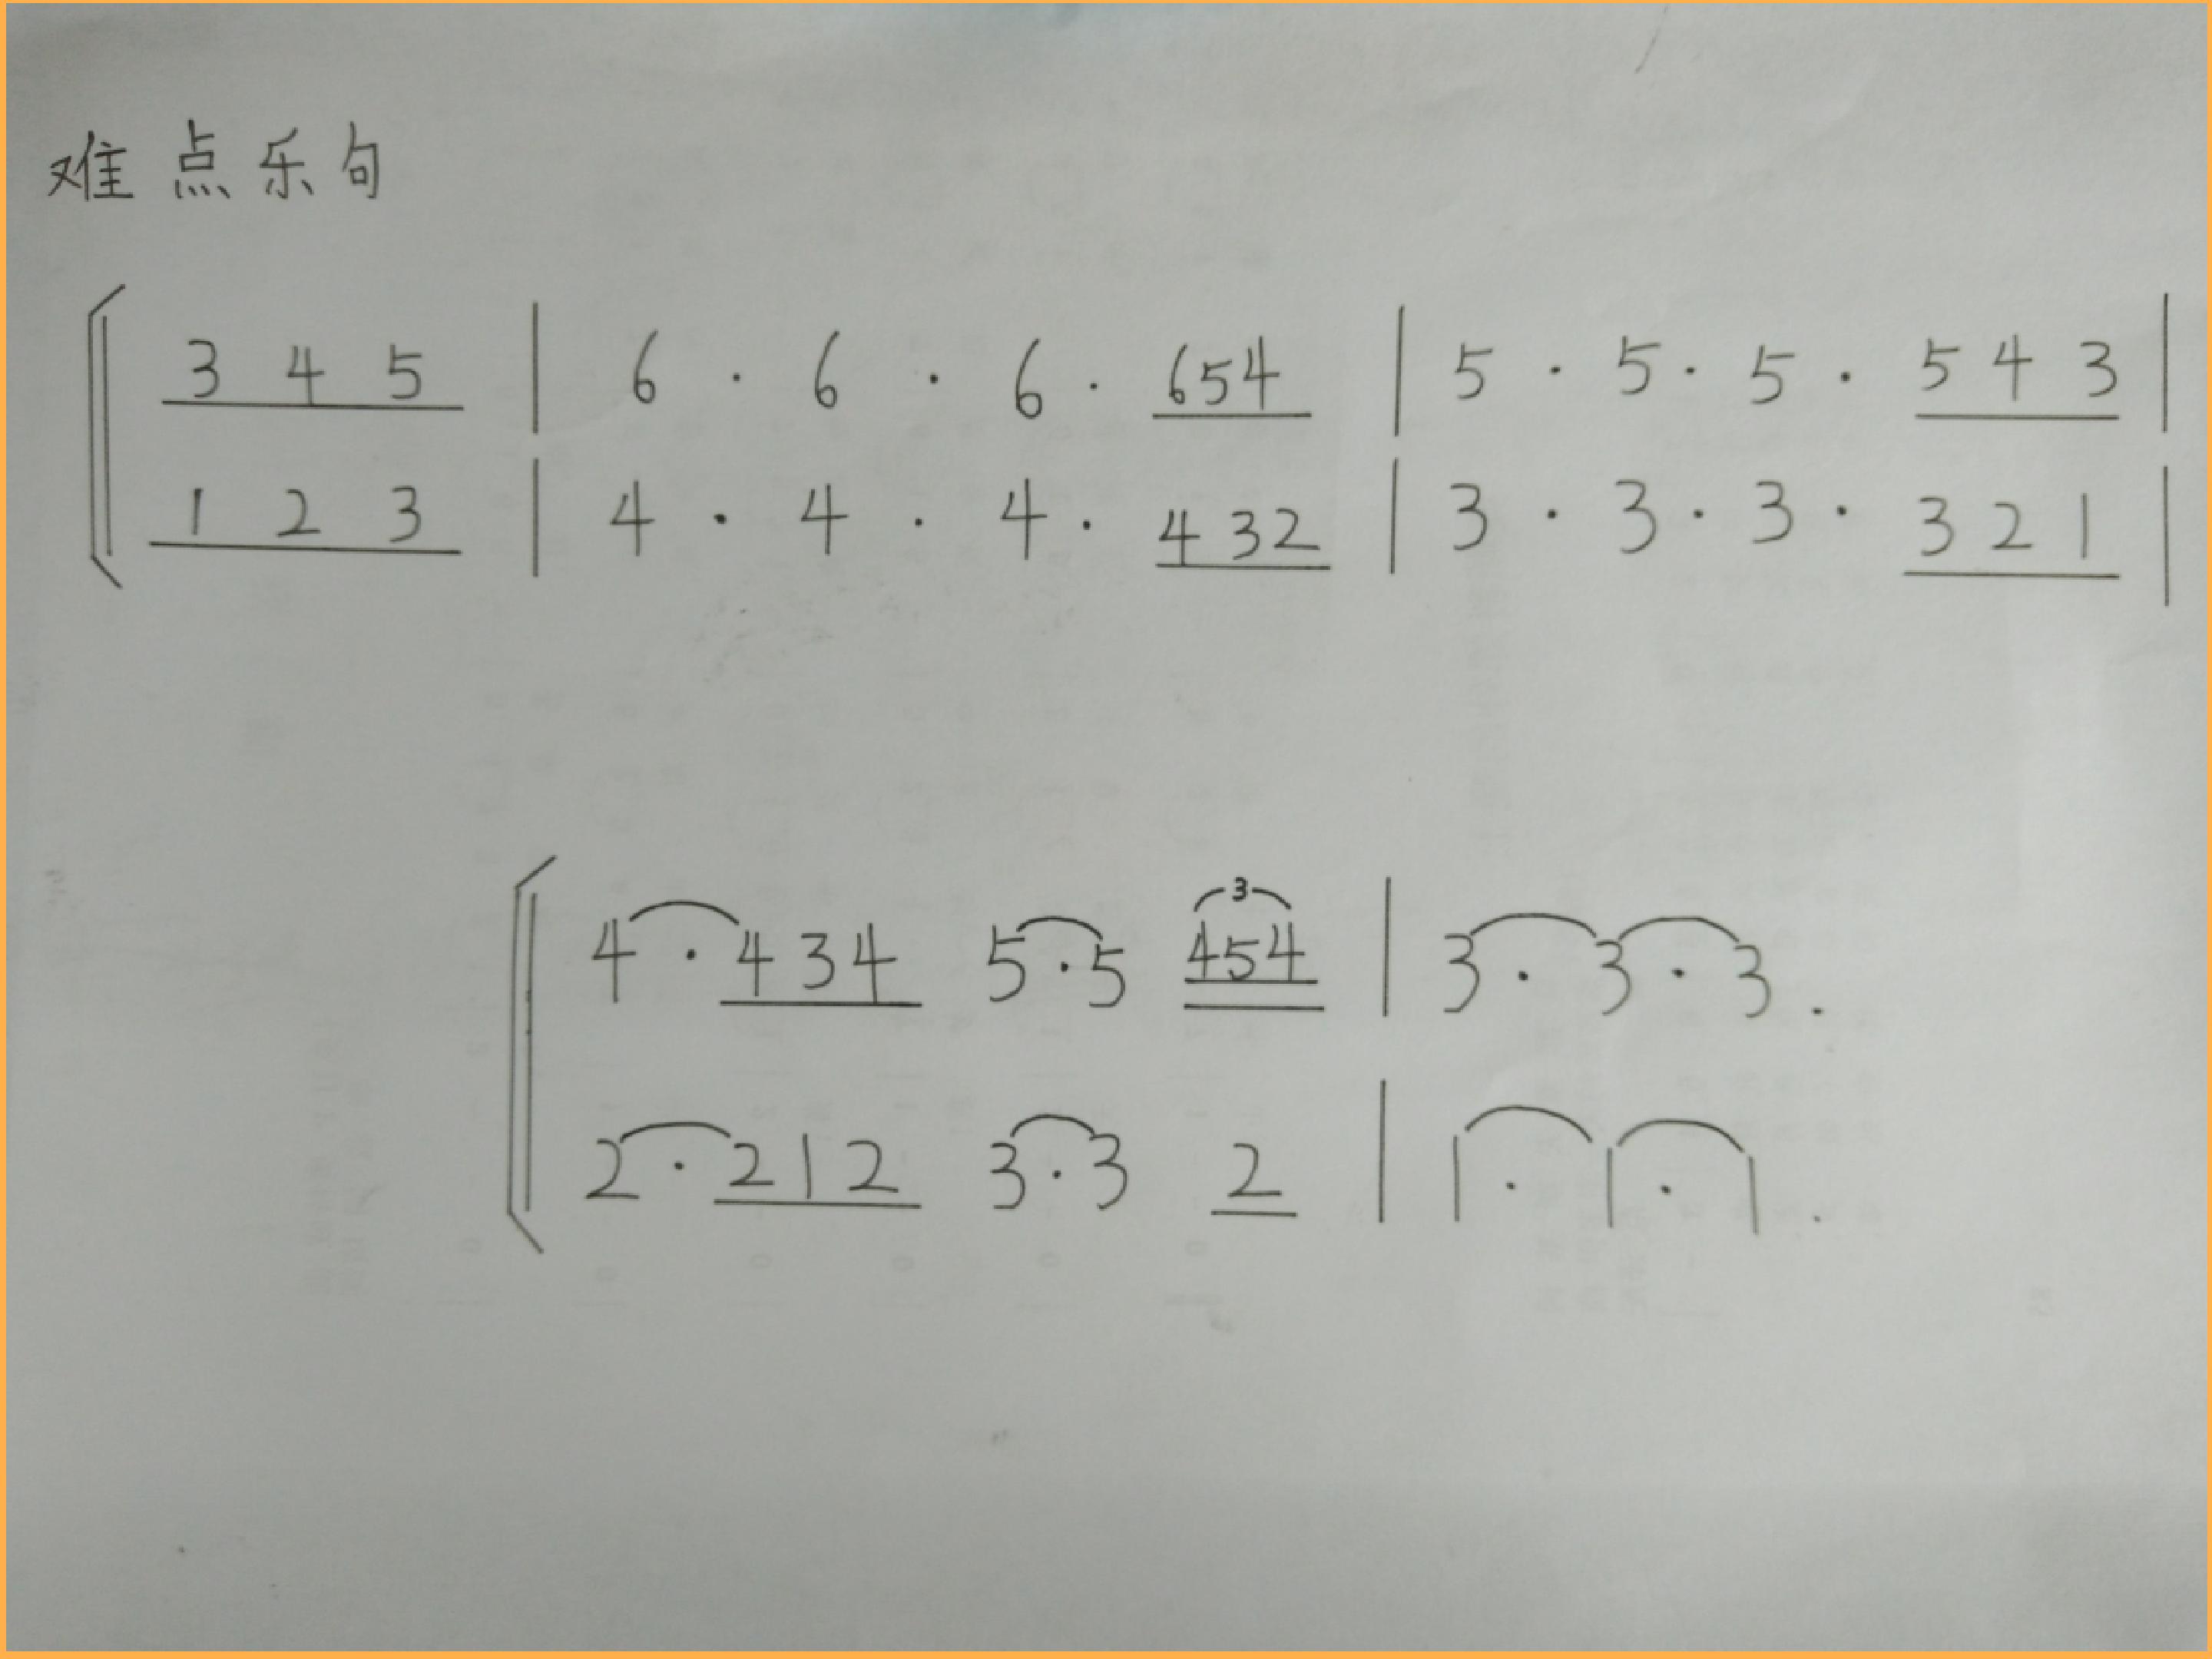 难点乐句
3 4 5 | 6 · 6 · 6 · 654 | 5 · 5 · 5 · 5 4 3 |
1 2 3 | 4 · 4 · 4 · 432 | 3 · 3 · 3 · 3 2 1 |
3
4 · 434 5 · 5 454 | 3 · 3 · 3 .
2 · 212 3 · 3 2 | 1 · 1 · 1 .